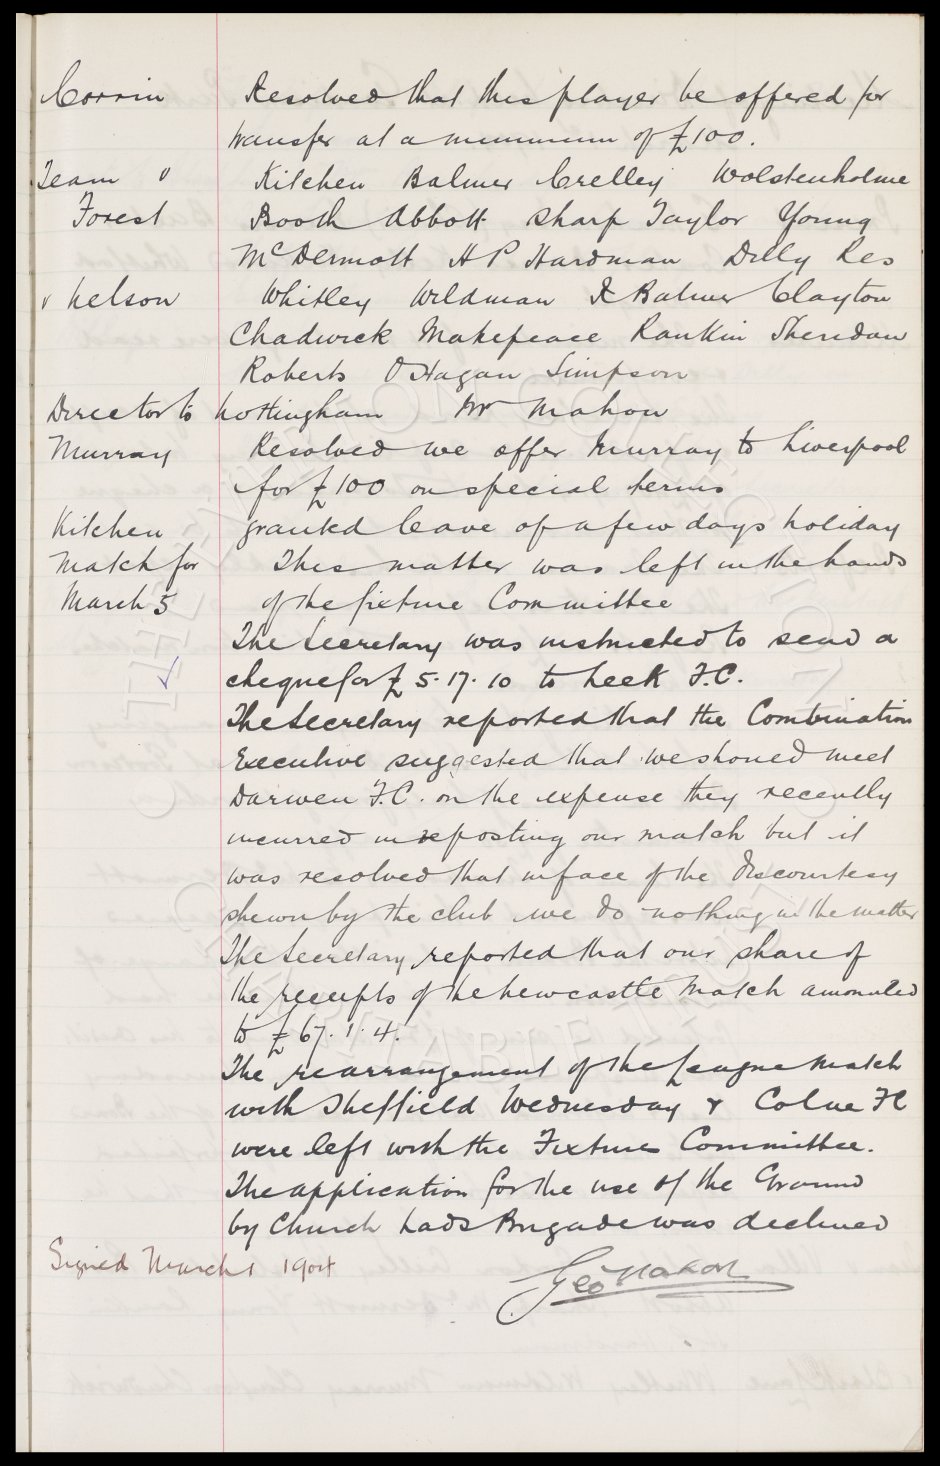 Corrin Resolved that this player be offered for
transfer at a minimum of £100.
Team v Kitchen Balmer Crelley Wolstenholme
Forest Booth Abbott Sharp Taylor Young
McDermott H P Hardman Dilly Res
v Nelson Whitley Wildman R Balmer Clayton
Chadwick Makepeace Rankin Sheridan
Roberts O'Hagan Simpson
Director to Nottingham Mr Mahon
Murray Resolved we offer Murray to Liverpool
for £100 on special terms
Kitchen granted leave of a few days holiday
Match for This matter was left in the hands
March 5 of the fixture Committee
The Secretary was instructed to send a
cheque for £5.17.10 to Leek F.C.
The Secretary reported that the Combination
Executive suggested that we should meet
Darwen F.C. on the expense they recently
incurred in reposting our match but it
was resolved that in face of the discourtesy
shewn by the club we do nothing in the matter
The Secretary reported that our share of
the receipts of the Newcastle Match amounted
to £67.1.4.
The rearrangement of the League Match
with Sheffield Wednesday & Colne FC
were left with the Fixture Committee.
The application for the use of the Ground
by Church Lads Brigade was declined
Signed March 1 1904 Geo Mahon